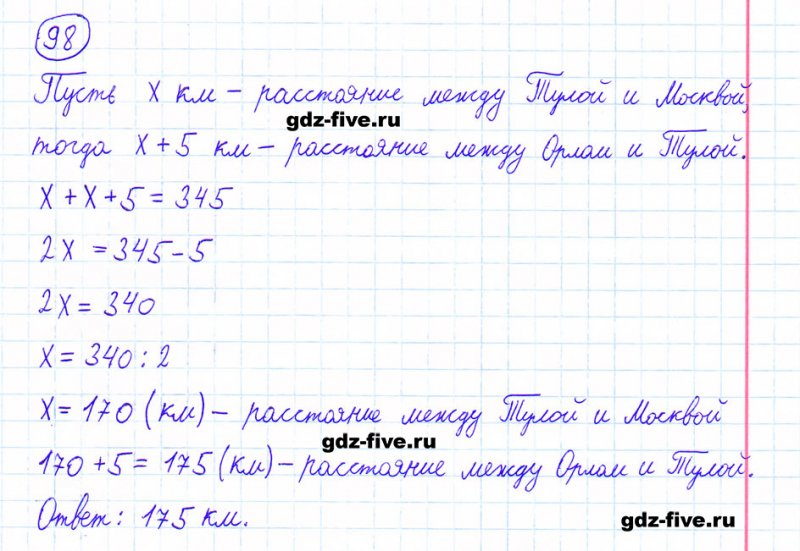 98
Пусть x км – расстояние между Тулой и Москвой,
gdz-five.ru
тогда x + 5 км – расстояние между Орлом и Тулой.
x + x + 5 = 345
2x = 345 - 5
2x = 340
x = 340 : 2
x = 170 (км) – расстояние между Тулой и Москвой
gdz-five.ru
170 + 5 = 175 (км) – расстояние между Орлом и Тулой.
Ответ: 175 км.
gdz-five.ru